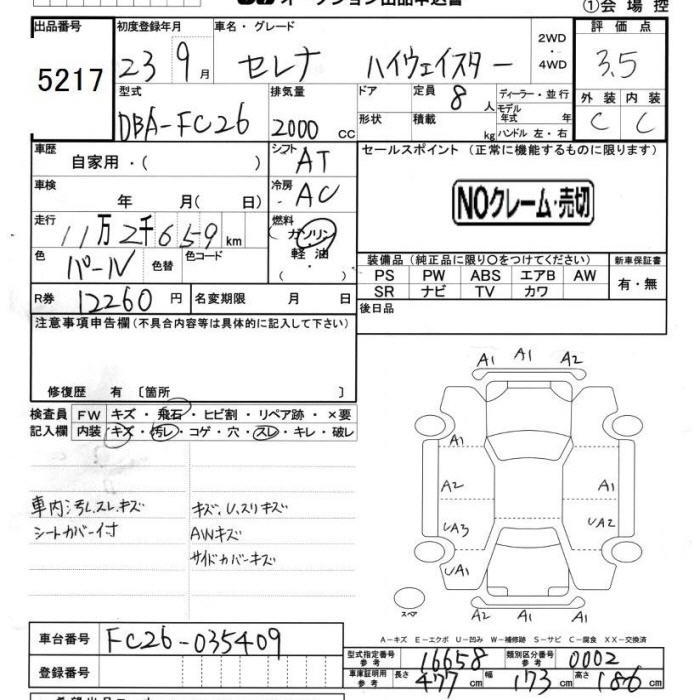 オークション出品申込書
①会場控
出品番号 初度登録年月 車名・グレード 2WD・4WD 評価点
5217 23 9月 セレナ ハイウェイスター 3.5
型式 排気量 ドア 定員 8人 ディーラー・並行 外装 内装
DBA-FC26 2000cc 形状 積載 kg モデル年式 年 ハンドル 左・右 C C
車歴 自家用・( ) シフト AT セールスポイント(正常に機能するものに限ります)
車検 年 月( 日) 冷房 AC NOクレーム・売切
走行 11万2千659km 燃料 ガソリン・軽油 ( ・ )
色 パール 色替 色コード 装備品(純正品に限り○をつけてください) 新車保証書
PS PW ABS エアB AW 有・無
SR ナビ TV カワ
R券 12260円 名変期限 月 日 後日品
注意事項申告欄(不具合内容等は具体的に記入して下さい)
修復歴 有〔箇所 〕
検査員 FW キズ・飛石・ヒビ割・リペア跡・×要
記入欄 内装 キズ・汚レ・コゲ・穴・スレ・キレ・破レ
車内汚レスレキズ
シートカバー付
キズ、U、スリキズ
AWキズ
サイドカバーキズ
A1 A1 A2
A1
A2 A1
UA3 UA2
UA1 UA1
A2 A1 A1
スペア
A-キズ E-エクボ U-凹み W-補修跡 S-サビ C-腐食 XX-交換済
車台番号 FC26-035409
登録番号
型式指定番号 参考 16658 類別区分番号 参考 0002
車庫証明用 参考 長さ 477cm 幅 173cm 高さ 186cm